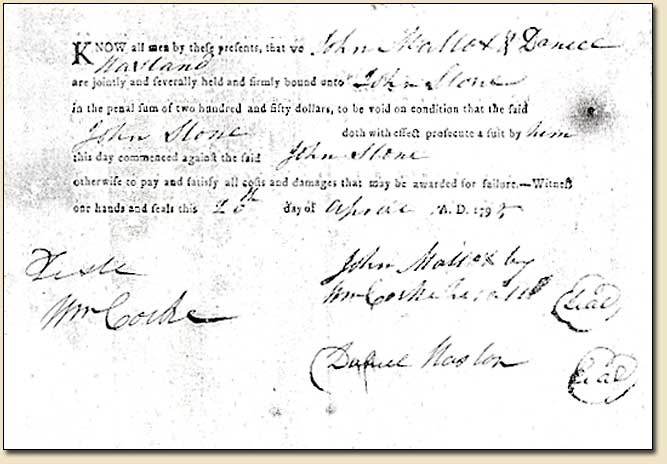 KNOW all men by these presents, that we John Mattox & Daniel
Hasland
are jointly and severally held and firmly bound unto John Stone
in the penal sum of two hundred and fifty dollars, to be void on condition that the said
John Stone doth with effect prosecute a suit by him
this day commenced against the said John Stone
otherwise to pay and satisfy all costs and damages that may be awarded for failure.—Witness
our hands and seals this 20th day of April A. D. 1795
Teste
Wm Cocke
John Mattox by
Wm Cocke his att
Seal
Daniel Haslon
Seal